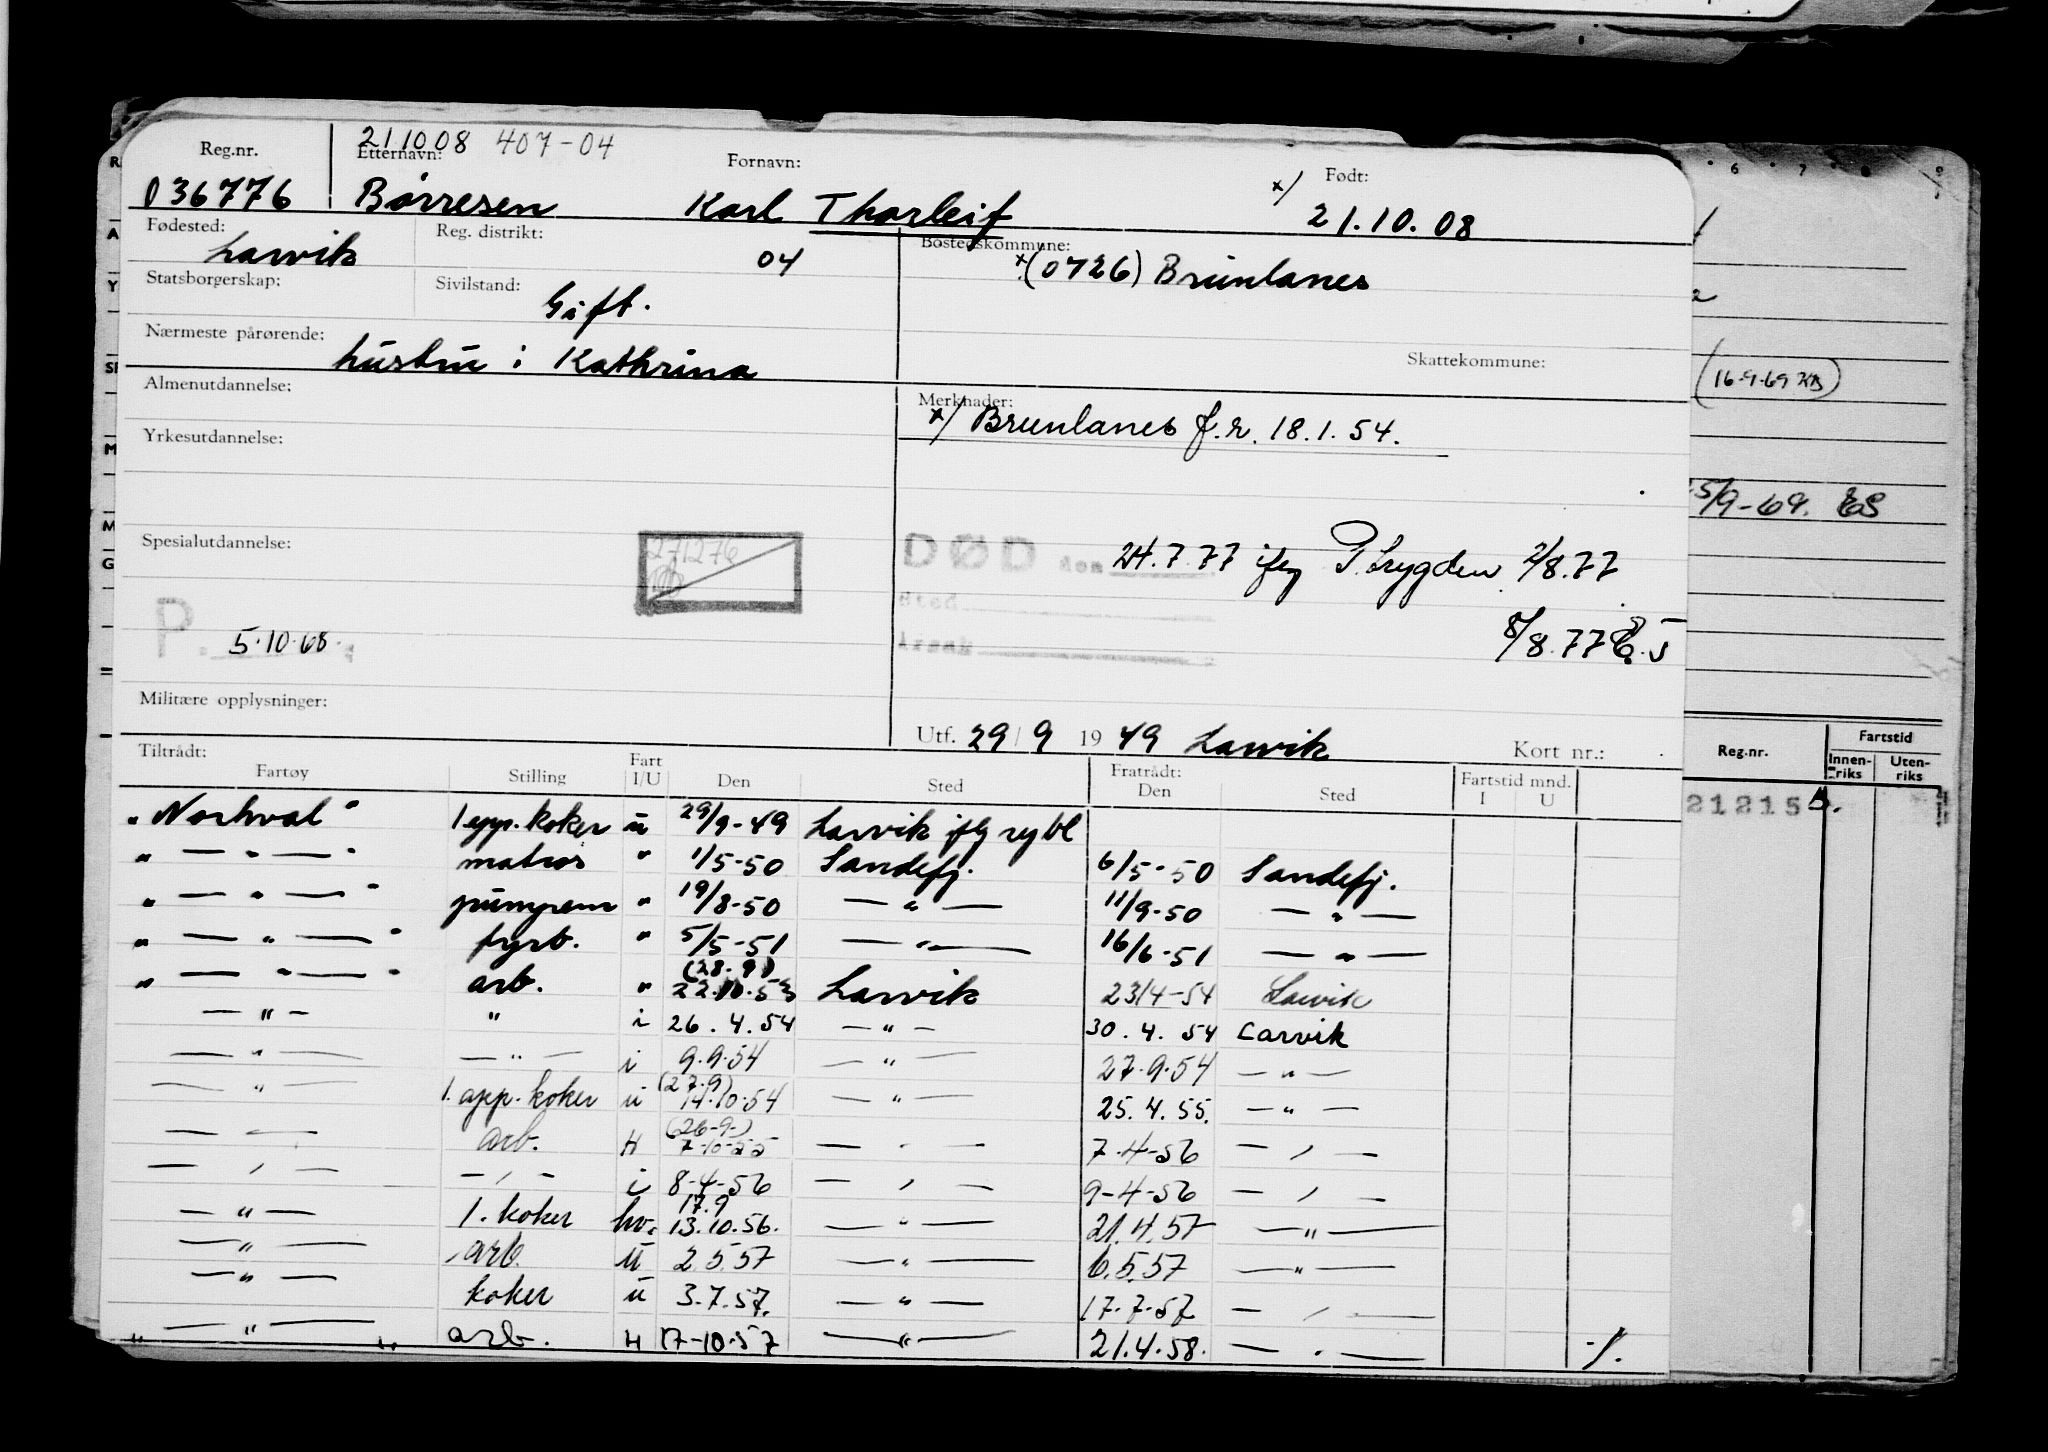 211008 407-04
Reg.nr. Etternavn: Fornavn: Født:
036776 Børresen Karl Thorleif x/ 21.10.08
Fødested: Reg. distrikt: Bostedskommune:
Larvik 04 x(0726) Brunlanes
Statsborgerskap: Sivilstand:
Gift.
Nærmeste pårørende: Skattekommune:
hustru : Kathrina
(16-9-69
Almenutdannelse: Merknader:
x/ Brunlanes f.r. 18.1.54.
Yrkesutdannelse:
15/9-69. ES
Spesialutdannelse: 271276
DØD den 24.7.77 iflg P.trygden 2/8.77
Sted
P. 5.10.68.
8/8.77
Årsak
Militære opplysninger:
Utf. 29/9 1949 Larvik Kort nr.:
Tiltrådt: Fratrådt: Fartstid mnd.
Fartøy Stilling Fart I/U Den Sted Den Sted I U
Reg.nr. Fartstid Innen-riks Uten-riks
21215
„Norhval" 1 app.koker u 29/9-49 Larvik iflg sybl
" — " — " matros " 1/5-50 Sandefj. 6/5-50 Sandefj.
" — " — " pumpem " 19/8-50 — " — 11/9-50 — " —
" — " — " fyrb. " 5/5-51 — " — 16/6-51 — " —
(28.9)
" — " — " arb. " 22.10.53 Larvik 23/4-54 Larvik
— " — " i 26.4.54 — " — 30.4.54 Larvik
— " — — " — i 9.9.54 — " — 27.9.54 — " —
(27.9)
— " — 1. app. koker u 14.10.54 — " — 25.4.55. — " —
(26-9-)
— " — arb. H 7-10-55 — " — 7-4-56 — " —
— " — — " — i 8-4-56 — " — 9-4-56 — " —
17.9
— " — 1. koker hv. 13.10.56. — " — 21.4.57 — " —
— " — arb. u 2.5.57 — " — 6.5.57 — " —
— " — koker u 3.7.57. — " — 17.7.57 — " —
" — " — " arb. H 17-10-57 — " — 21.4.58. — " — -/.